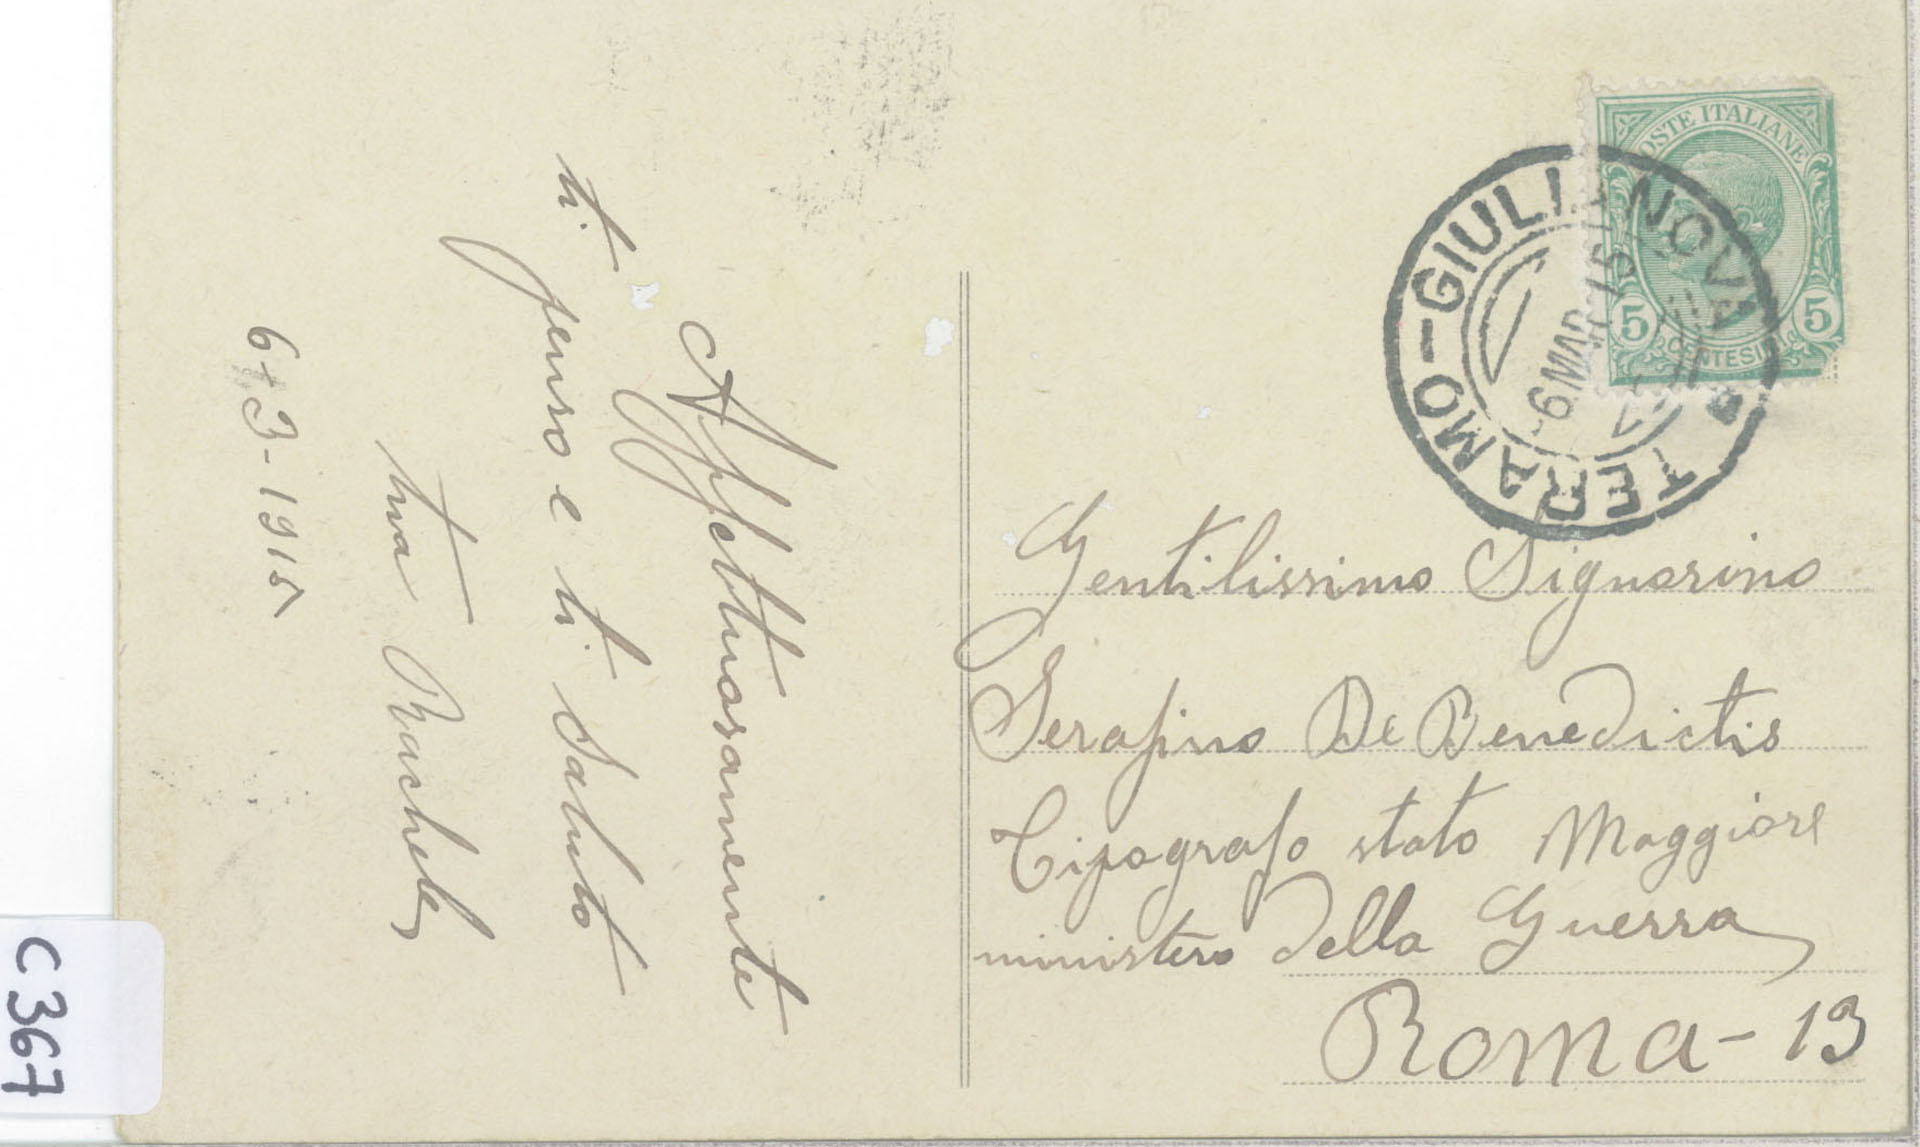 POSTE ITALIANE
5 5
CENTESIMI
TERAMO-GIULIANOVA
-6 MAR 15
Affettuosamente
ti penso e ti saluto
tua Rachele
6-3-1915
Gentilissimo Signorino
Serafino De Benedictis
Tipografo stato Maggiore
ministero della Guerra
Roma-13
C367